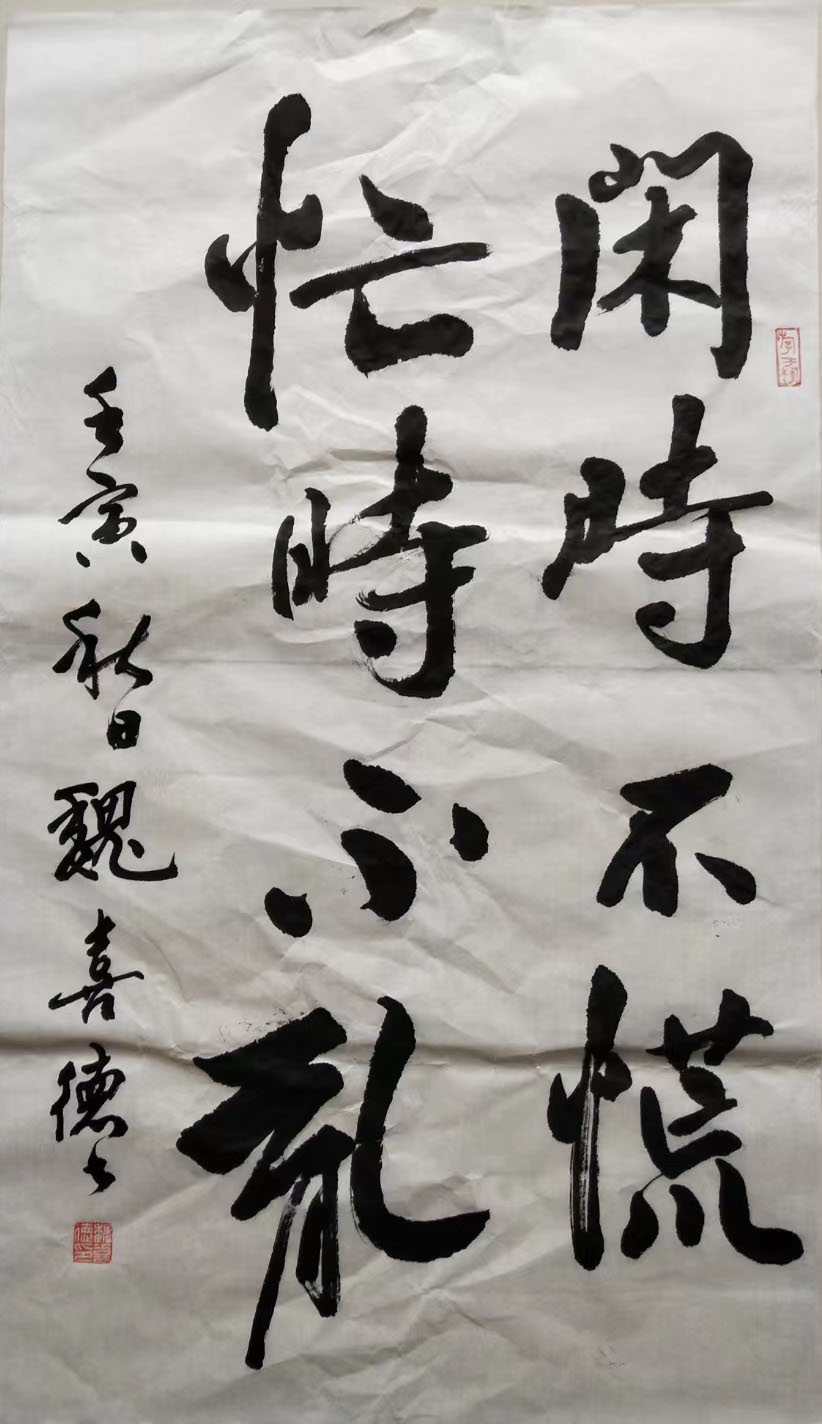 閑時不慌
忙時不亂
壬寅秋日魏喜德书